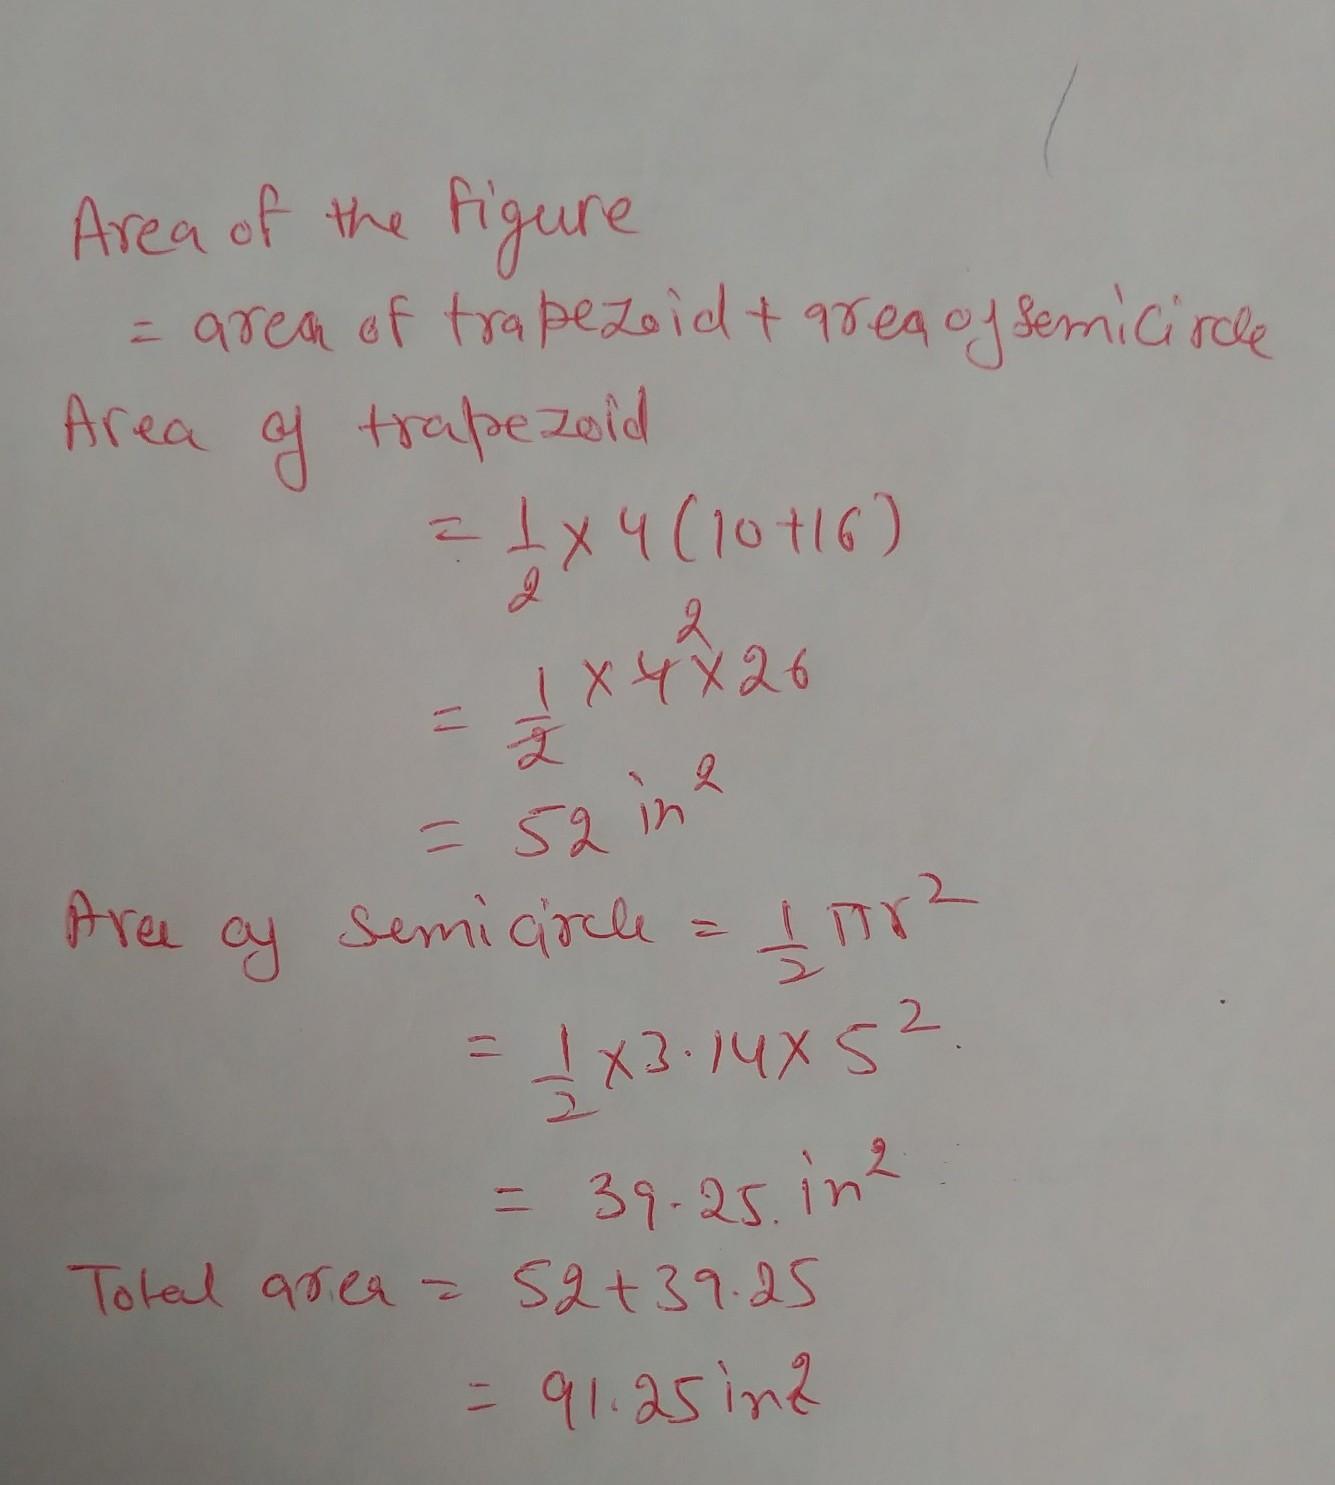 Area of the figure
= area of trapezoid + area of semicircle
Area of trapezoid
= 1/2 × 4 (10+16)
= 1/2 × 4 2 × 26
= 52 in²
Area of semicircle = 1/2 πr²
= 1/2 × 3.14 × 5².
= 39.25. in²
Total area = 52 + 39.25
= 91.25 in²